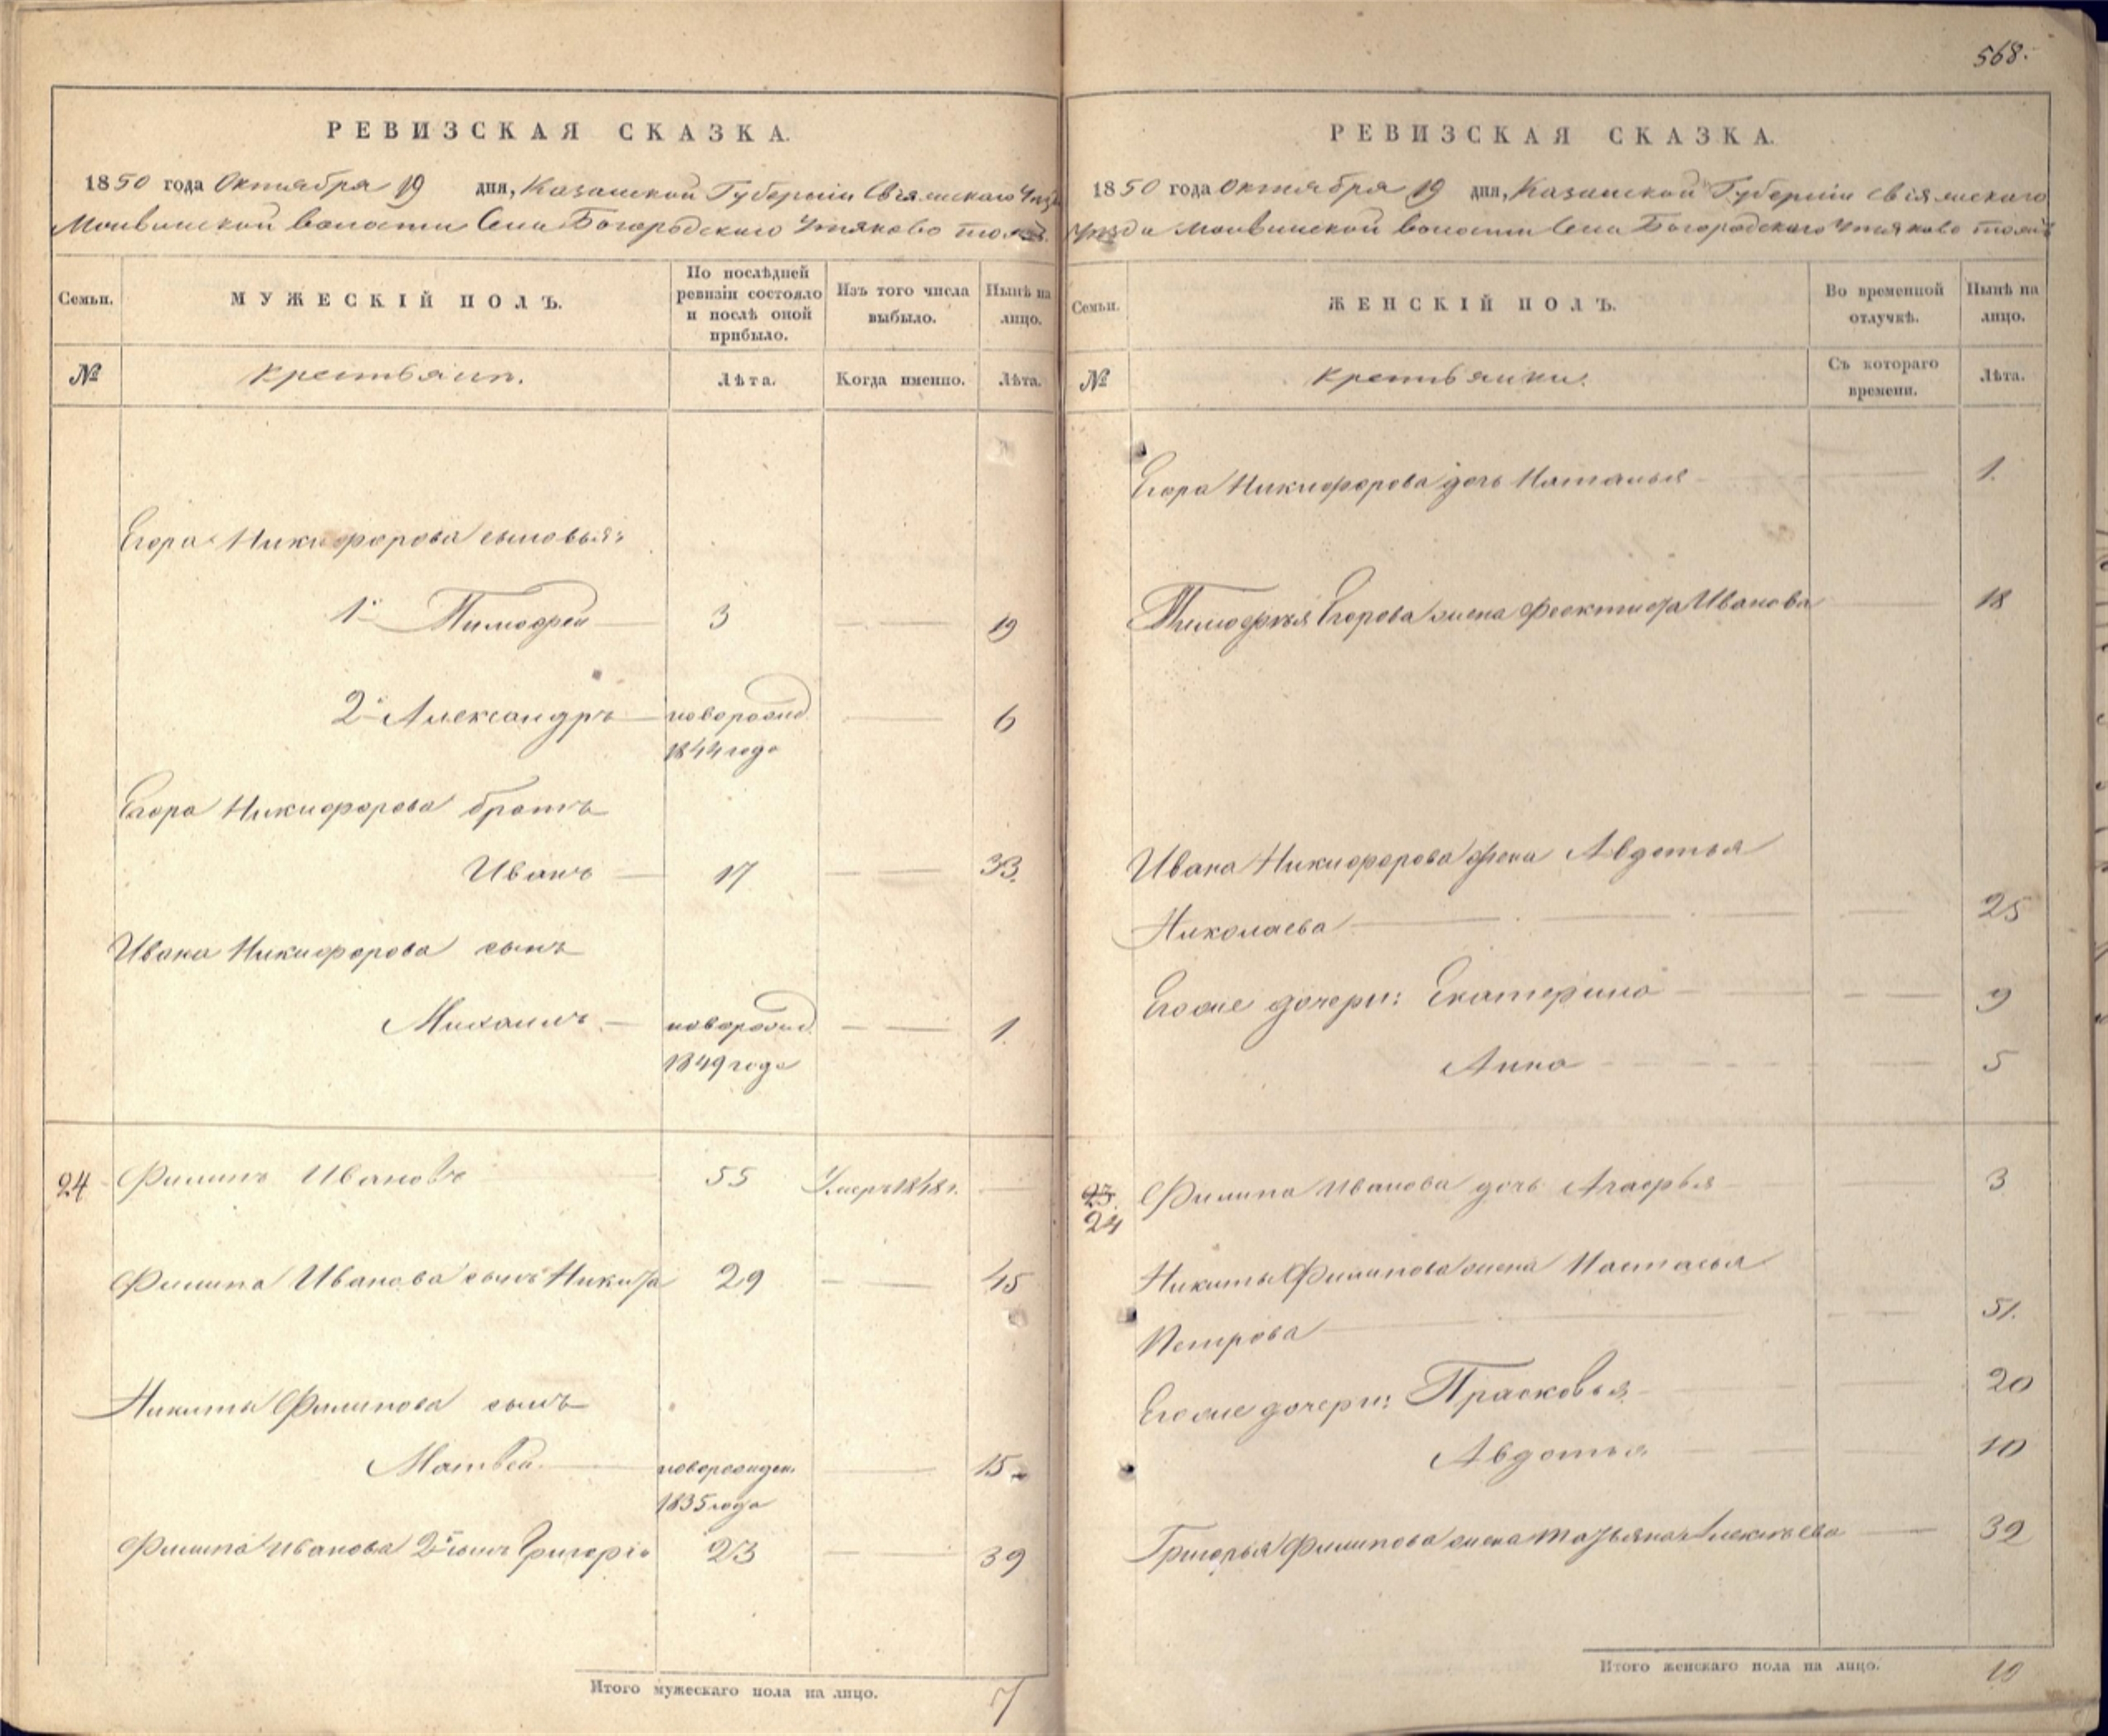 568.
РЕВИЗСКАЯ СКАЗКА.
1850 года Октября 19 дня, Казанской Губерніи Свіяжскаго
волости Села Богородскаго Утяково тожъ
Семьи.
МУЖЕСКІЙ ПОЛЪ.
По послѣдней ревизіи состояло и послѣ оной прибыло.
Изъ того числа выбыло.
Нынѣ на лицо.
№
крестьянъ.
Лѣта.
Когда именно.
Лѣта.
Егора Никифорова сыновья:
1й Тимофей 3 19
2й Александръ новорожд 6
1844 года
Егора Никифорова братъ
Иванъ 17 33.
Ивана Никифорова сынъ
Михаилъ новорожд. 1.
1849 года
24 Филипъ Ивановъ 55 Умеръ 1848 г.
Филипа Иванова сынъ Никита 29 45
Никиты Филипова сынъ
Матвей новорожден. 15
1835 года
Филипа Иванова 2й сынъ Григорій 23 39
Итого мужескаго пола на лицо. 7
РЕВИЗСКАЯ СКАЗКА.
1850 года Октября 19 дня, Казанской Губерніи Свіяжскаго
Уѣзда волости Села Богородскаго Утяково тожъ
Семьи.
ЖЕНСКІЙ ПОЛЪ.
Во временной отлучкѣ.
Нынѣ на лицо.
№
крестьянки.
Съ котораго времени.
Лѣта.
Егора Никифорова дочь Наталья 1.
Тимофея Егорова жена Феоктиста Иванова 18
Ивана Никифорова жена Авдотья
Николаева 25
Егоже дочери: Екатерина 9
Анна 5
23.
24
Филипа Иванова дочь Агафья 3
Никиты Филипова жена Настасья
Петрова 51.
Егоже дочери: Прасковья 20
Авдотья 10
Григорья Филипова жена Татьяна Алексѣева 39
Итого женскаго пола на лицо. 10